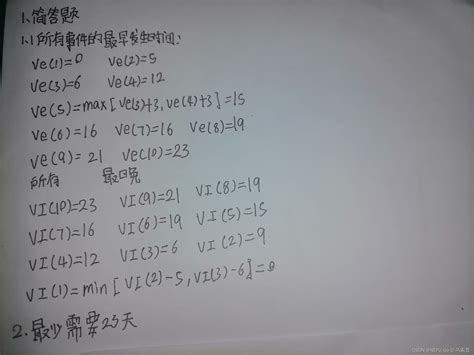 1.简答题
1.1所有事件的最早发生时间:
ve(1)=0 ve(2)=5
ve(3)=6 ve(4)=12
ve(5)=max[ve(3)+3,ve(4)+3]=15
ve(6)=16 ve(7)=16 ve(8)=19
ve(9)=21 ve(10)=23
所有 最晚
VI(10)=23 VI(9)=21 VI(8)=19
VI(7)=16 VI(6)=19 VI(5)=15
VI(4)=12 VI(3)=6 VI(2)=9
VI(1)=min[VI(2)-5,VI(3)-6]=0
2.最少需要23天